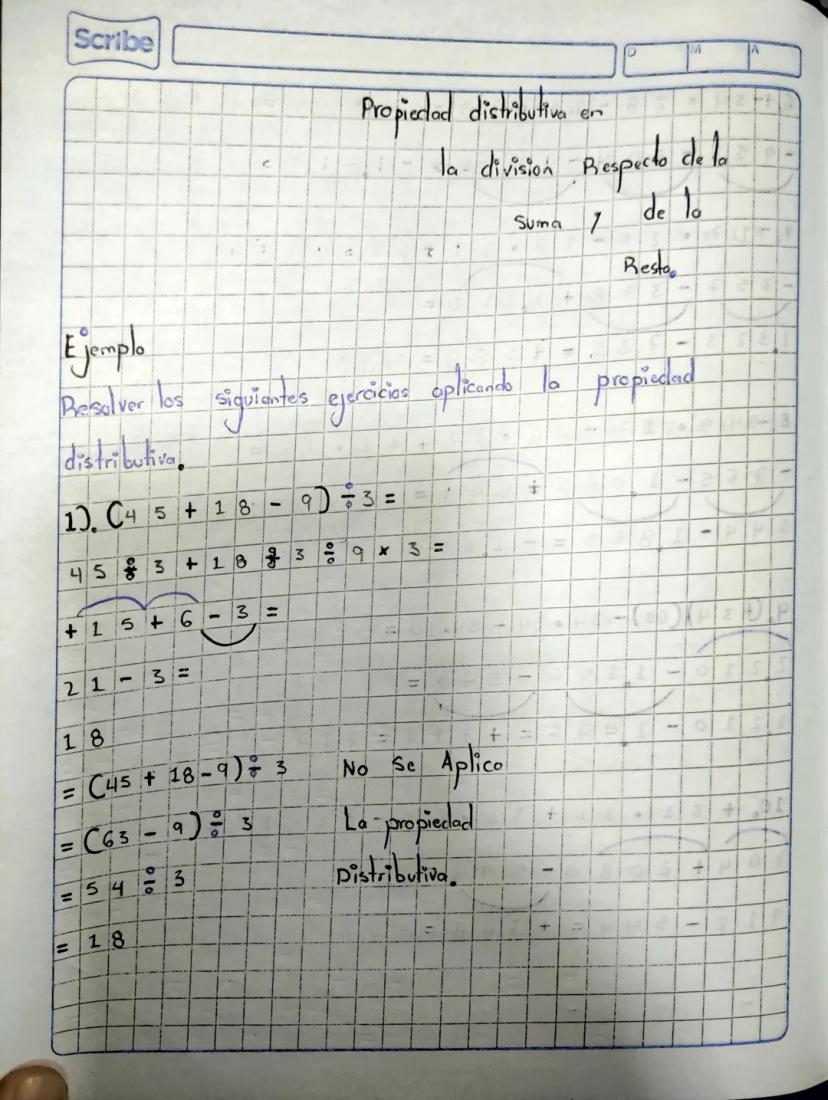 Scribe
D M A
Propiedad distributiva en
la division Respecto de la
suma y de la
Resta.
Ejemplo
Resolver los siguientes ejercicios aplicando la propiedad
distributiva.
1). (45 + 18 - 9) ÷ 3 =
45 ÷ 3 + 18 ÷ 3 ÷ 9 × 3 =
+ 15 + 6 - 3 =
21 - 3 =
18
= (45 + 18 - 9) ÷ 3 No Se Aplico
= (63 - 9) ÷ 3 La propiedad
= 54 ÷ 3 Distributiva.
= 18